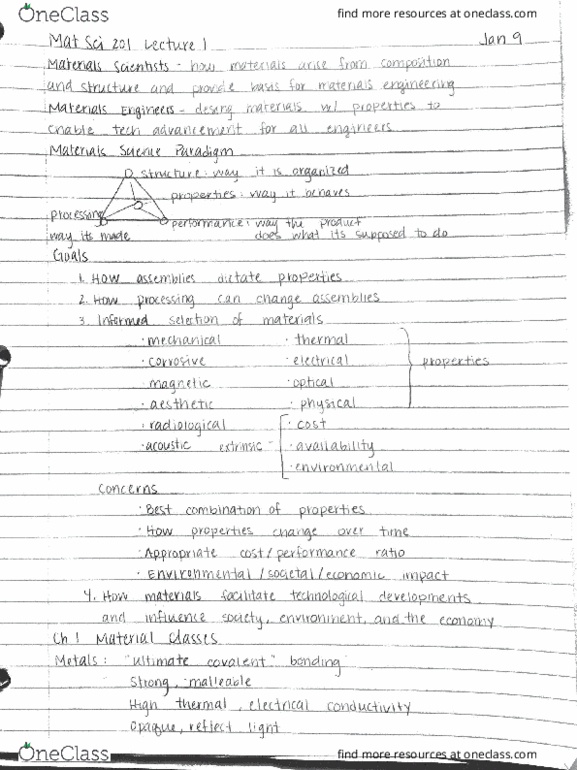 OneClass find more resources at oneclass.com
Mat Sci 201 Lecture 1 Jan 9
Materials Scientists - how materials arise from composition
and structure and provide basis for materials engineering
Materials Engineers - desing materials w/ properties to
enable tech advancement for all engineers
Materials Science Paradigm
structure: way it is organized
properties: way it behaves
processing performance: way the product
way its made does what its supposed to do
Goals
1. How assemblies dictate properties
2. How processing can change assemblies
3. Informed selection of materials
· mechanical · thermal
· corrosive · electrical properties
· magnetic · optical
· aesthetic · physical
· radiological · cost
· acoustic extrinsic · availability
· environmental
Concerns
· Best combination of properties
· How properties change over time
· Appropriate cost/performance ratio
· Environmental/societal/economic impact
4. How materials facilitate technological developments
and influence society, environment, and the economy
Ch 1 Material Classes
Metals: "ultimate covalent" bonding
Strong, malleable
High thermal, electrical conductivity
Opaque, reflect light
OneClass find more resources at oneclass.com